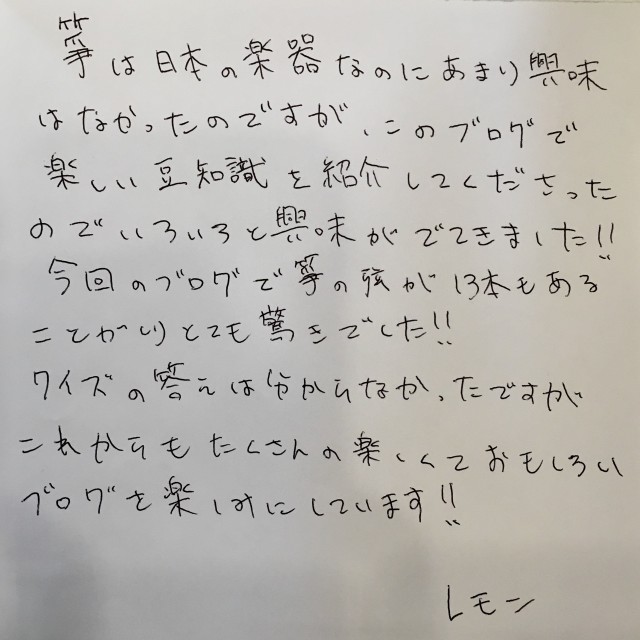 箏は日本の楽器なのにあまり興味
はなかったのですが、このブログで
楽しい豆知識を紹介してくださった
のでいろいろと興味がでてきました!!
今回のブログで箏の弦が13本もある
ことがりとても驚きでした!!
クイズの答えは分からなかったですが
これからもたくさんの楽しくておもしろい
ブログを楽しみにしています!!
レモン